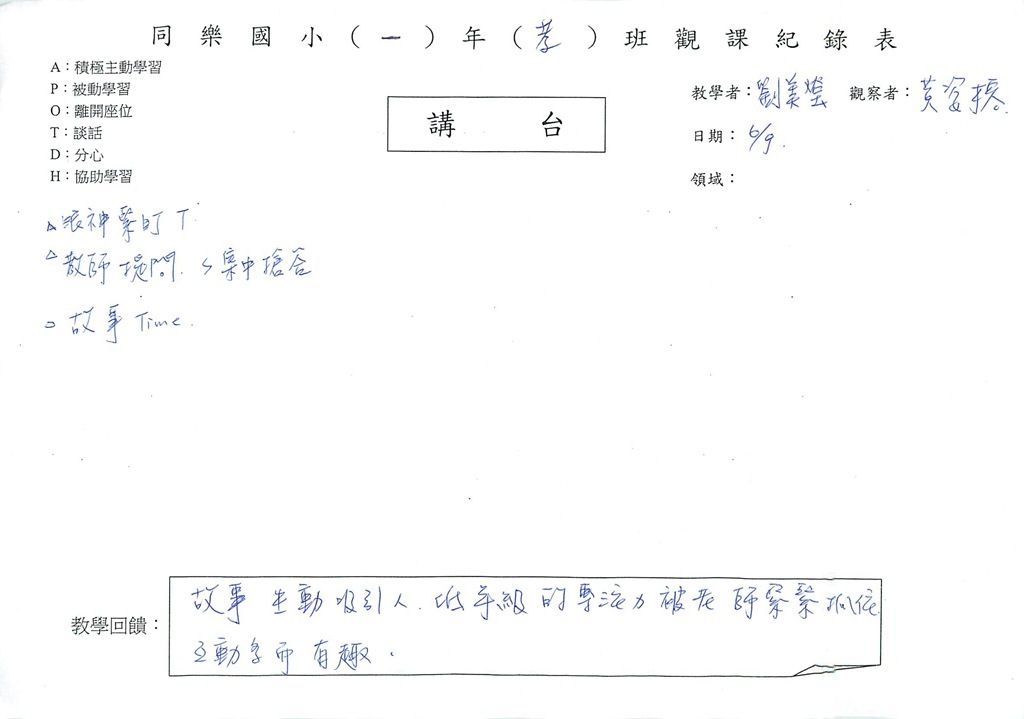 同樂國小(一)年(孝)班觀課紀錄表
A:積極主動學習
P:被動學習
O:離開座位
T:談話
D:分心
H:協助學習
講 台
教學者:劉美瑩 觀察者:黃姿
日期:6/9
領域:
△眼神緊盯 T
△教師提問. S集中搶答
故事 Time.
教學回饋:
故事生動吸引人.低年級的專注力被老師緊緊抓住
互動多而有趣.